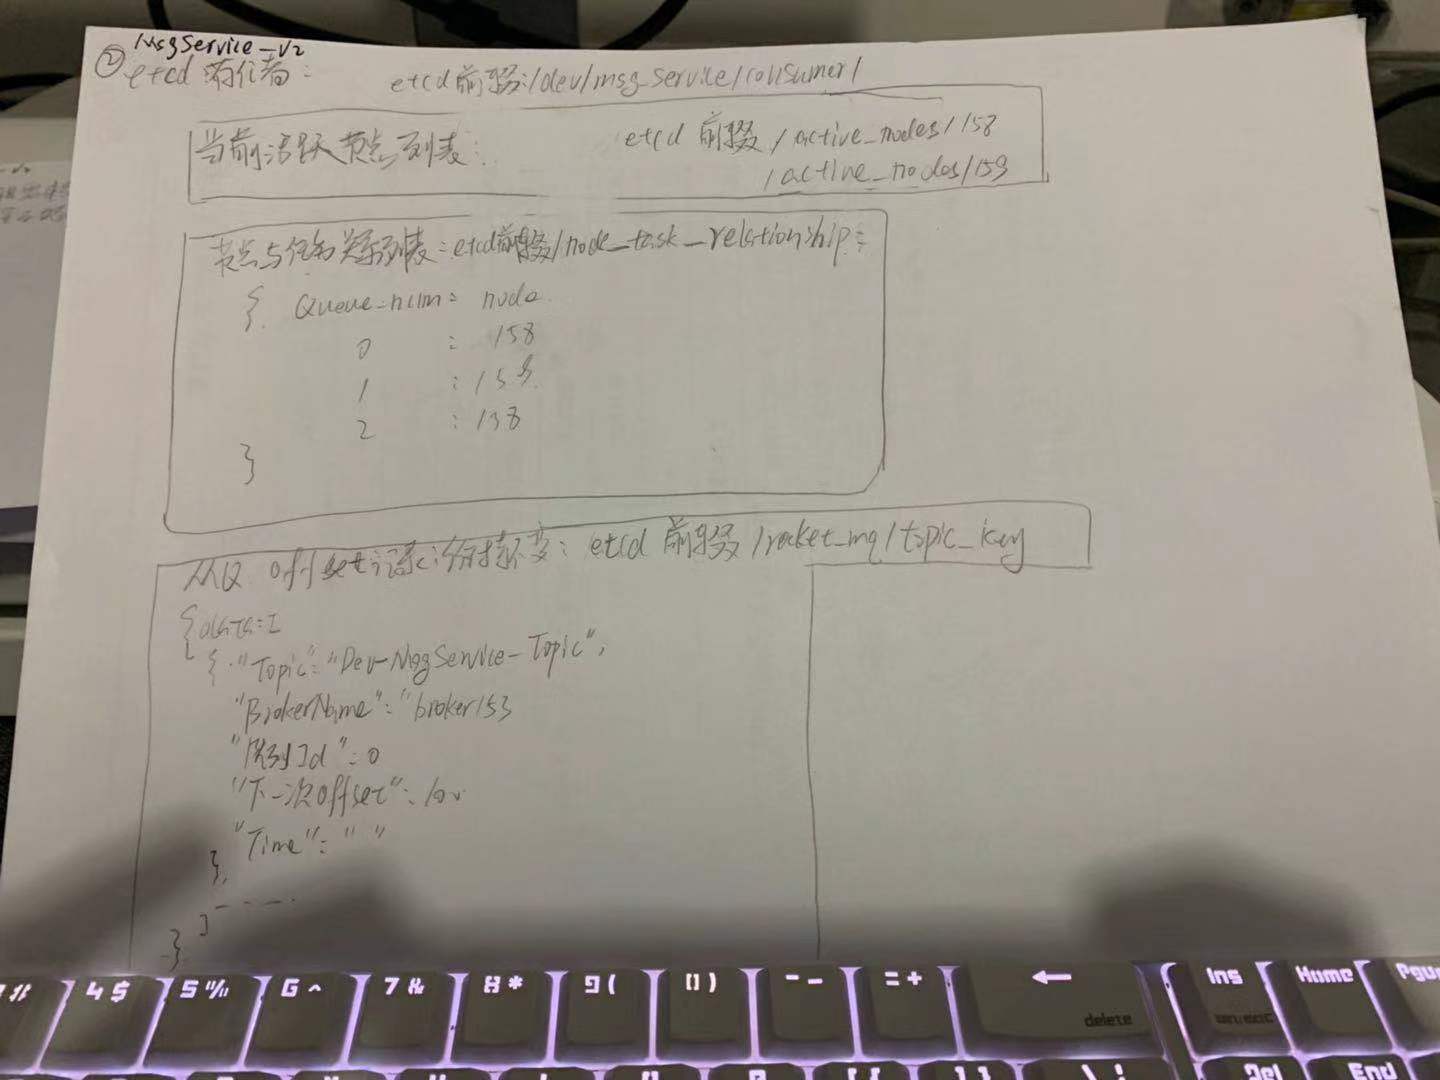 MsgService-V2
② etcd 存什么:
etcd前缀:/dev/msg_service/consumer/
当前活跃节点列表: etcd 前缀 /active_nodes/158
/active_nodes/159
节点与任务关系列表: etcd前缀/node_task_relationship:
{ Queue_num: node
0 : 158
1 : 159
2 : 138
}
MQ offset记录 保持不变: etcd 前缀 /rocket_mq/topic_key
{data:[
{"Topic":"Dev-MsgService-Topic",
"BrokerName":"broker153
"队列Id":0
"下一次offset":100
"Time":" "
},
- - - -
]
}
4 $ 5 % 6 ^ 7 & 8 * 9 ( 0 ) - - = + ← Ins Home PgU
delete
Del End